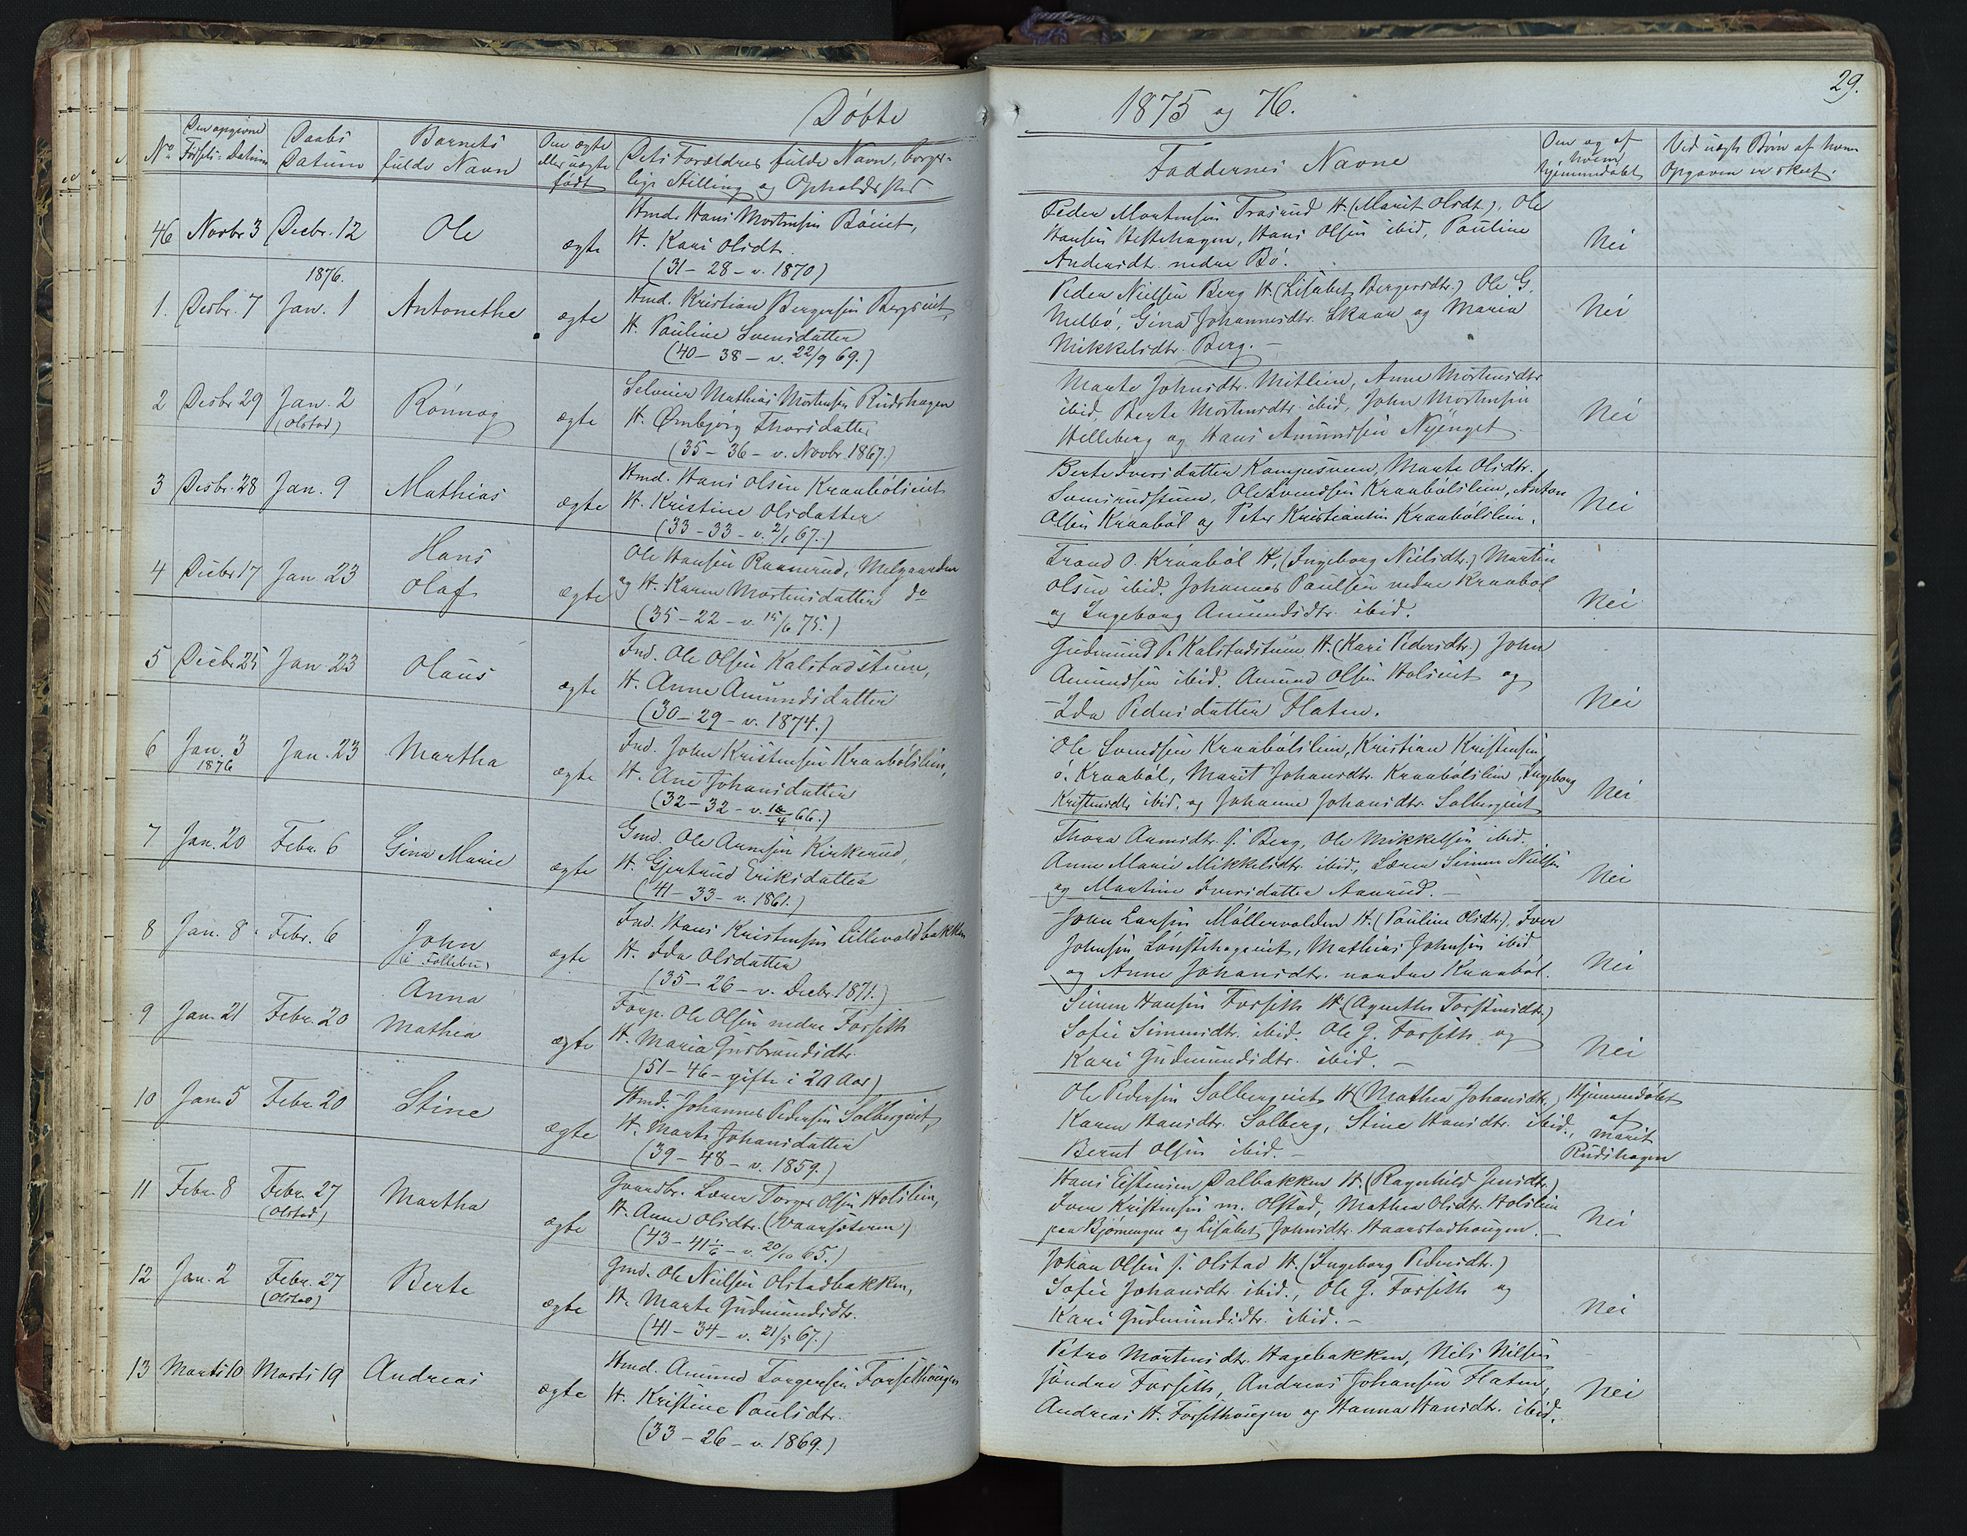 Døbte
1875 og 76.
29.
No
Den opgivne Fødsels-Datum
Daabs Datum
Barnets fulde Navn
Om ægte eller uægte født
Dets Forældres fulde Navn, borgerlige Stilling og Opholdssted
Faddernes Navne
Om og af hvem hjemmedøbt
Ved uægte Børn af hvem Opgaven er skeet.
46 Novbr 3 Decbr. 12 Ole ægte
Hmd. Hans Mortensen Bøeiet,
H. Kari Olsdt.
(31-28-v. 1870)
Peder Mortensen Traserud H. (Marit Olsdt.), Ole
Hansen Hestehagen, Hans Olsen ibid, Pauline
Andersdt. nedre Bø.
Nei
1876.
1. Desbr. 7 Jan. 1 Antonethe ægte
Hmd. Kristian Bergersen Bergseiet,
H. Pauline Svensdatter
(40-38-v. 22/9 69.)
Peder Nielsen Berg H. (Lisabet Bergersdtr.) Ole G.
Melbø, Gina Johannesdtr. Skaar og Maria
Mikkelsdtr. Berg. —
Nei
2 Desbr 29 Jan. 2 (Olstad) Rønnog ægte
Selveier Mathias Mortensen Rudshagen
H. Ørnbjørg Thorsdatter
(35-36-v. Novbr. 1867.)
Marte Johnsdtr. Mitlien, Anne Mortensdtr
ibid, Berte Mortensdtr. ibid, John Mortensen
Helleberg og Hans Amundsen Nyenget.
Nei
3 Desbr. 28 Jan. 9 Mathias ægte
Hmd. Hans Olsen Kraabølseiet
H. Kristine Olsdatter
(33-33-v. 2/1 67.)
Berte Iversdatter Kampesveen, Marte Olsdtr.
Ole Svendsen Kraabølslien, Anton
Olsen Kraabøl og Peter Kristiansen Kraabølslien.
Nei
4 Decbr 17 Jan. 23 Hans Olaf ægte
Ole Hansen Raanerud, Melgaarden
og H. Karen Mortensdatter do
(35-22-v. 15/6 75.)
Trond O. Kraabøl H. (Ingeborg Nielsdtr.) Martin
Olsen ibid. Johannes Paulsen nedre Kraabøl
og Ingeborg Amundsdtr. ibid.
Nei
5 Decbr 25 Jan. 23 Olaus ægte
Ind. Ole Olsen Kalstadstuen,
H. Anne Amundsdatter
(30-29-v. 1874.)
Gudmund P. Kalstadstuen H. (Kari Pedersdtr.) John
Amundsen ibid. Amund Olsen Holseiet og
Ida Pedersdatter Flaten.
Nei
6 Jan. 3 1876 Jan. 23 Martha ægte
Ind. John Kristensen Kraabølslien,
H. Ane Johansdatter
(32-32-v. 10/4 66.)
Ole Svendsen Kraabølslien, Kristian Kristensen
ø. Kraabøl, Marit Johansdtr. Kraabølslien, Ingeborg
Kristensdtr ibid. og Johanne Johansdtr. Solbergeiet
Nei
7 Jan. 20 Febr. 6 Gina Marie ægte
Gmd. Ole Arnesen Kirkerud,
H. Gjertrud Eriksdatter
(41-33-v. 1861.)
Thora Arnesdtr. s. Berg, Ole Mikkelsen ibid.
Anne Marie Mikkelsdtr. ibid, Lærer Simen Nielsen
og Martine Iversdatter Aanrud. —
Nei
8 Jan. 8 Febr. 6 John (i Follebu) ægte
Ind. Hans Kristensen Lillevoldbakken
H. Ida Olsdatter
(35-26-v. Decbr. 1871.)
John Larsen Møllervolden H. (Pauline Olsdt.), Iver
Johnsen Mathias Johnsen ibid
og Anne Johansdtr. nordre Kraabøl.
Nei
9 Jan. 21 Febr. 20 Anna Mathea ægte
Forp. Ole Olsen nedre Forseth
H. Maria Gusbrandsdtr.
(51-46-gifte i 20 Aar)
Simen Hansen Forseth H. (Agnethe Torstensdtr.)
Sofie Simensdtr. ibid. Ole G. Forseth og
Kari Gudmundsdtr. ibid. —
Nei
10 Jan. 5 Febr. 20 Stine ægte
Hmd. Johannes Pedersen Solbergeiet,
H. Marte Johansdatter
(39-48-v. 1859.)
Ole Pedersen Solbergeiet H. (Mathea Johansdtr.)
Karen Hansdtr. Solberg, Stine Hansdtr. ibid.,
Bernt Olsen ibid. —
Hjemmedøbt af Marit Rudshagen
11 Febr. 8 Febr. 27 (Olstad) Martha ægte
Gaardbr. Lærer Torger Olsen Holslien,
H. Anne Olsdtr. (Vaarsæteren)
(43-41 1/6-v. 20/10 65.)
Hans Eistensen Dalbakken H. (Ragnhild Jensdtr.)
Iver Kristensen m. Olstad, Mathea Olsdtr. Holslien
paa Bjørnengen og Lisabet Johnsdtr. Haarstadhaugen. —
Nei
12 Jan. 2 Febr. 27 (Olstad) Berte ægte
Gmd. Ole Nielsen Olstadbakken,
H. Marte Gudmundsdtr.
(41-34-v. 21/5 67.)
Johan Olsen s. Olstad H. (Ingeborg Pedersdtr.)
Sofie Johansdtr. ibid., Ole G. Forseth og
Kari Gudmundsdtr. ibid. —
Nei
13 Marts 10 Marts 19 Andreas ægte
Hmd. Amund Torgersen Forsethougen
H. Kristine Paulsdtr.
(33-26-v. 1869.)
Petra Mortensdtr. Hagebakken, Nils Nilsen
søndre Forseth, Andreas Johansen Flaten,
Andreas H. Forsethougen og Hanna Hansdtr. ibid.
Nei